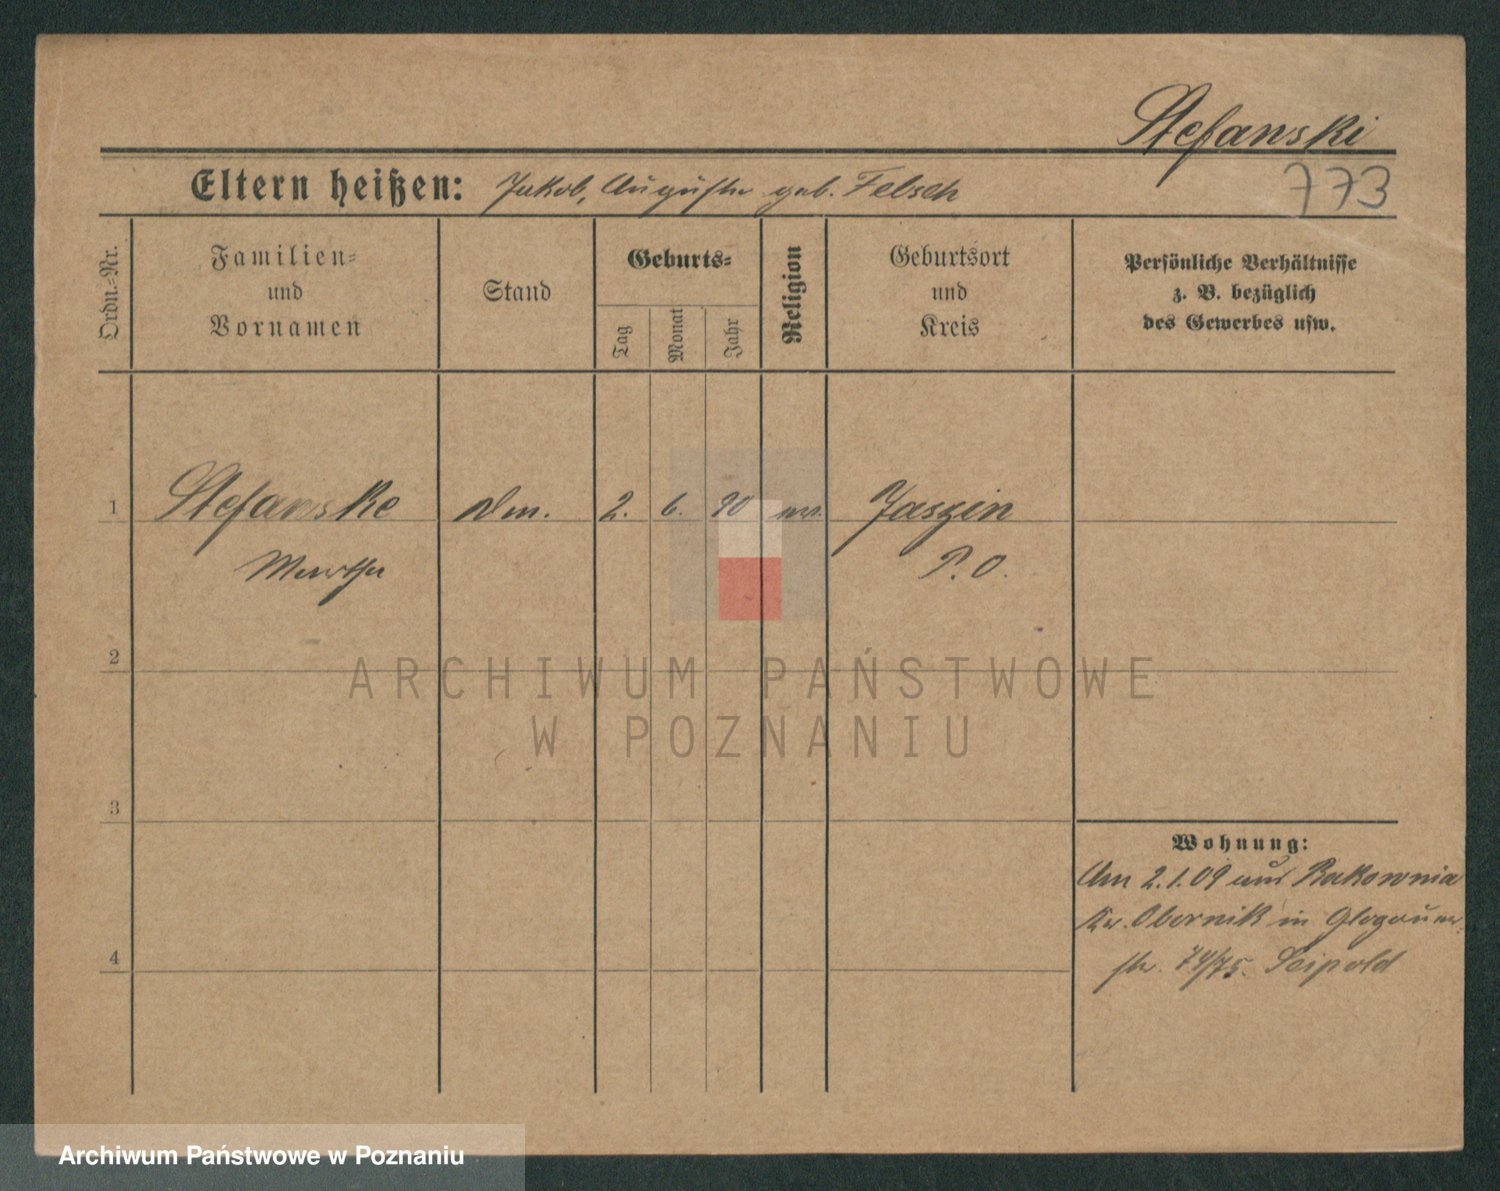 Stefanski
Eltern heißen: Jakob, Auguste geb. Felsch
773
Ordn.-Nr.
Familien-
und
Vornamen
Stand
Geburts-
Tag
Monat
Jahr
Religion
Geburtsort
und
Kreis
Persönliche Verhältnisse
z. B. bezüglich
des Gewerbes usw.
1 Stefanske 2. 6. 90 Jaszin
Martha P. O.
2
ARCHIWUM PAŃSTWOWE
W POZNANIU
3
Wohnung:
Am 2.1.09 aus Rakownia
Kr. Obornik in Glogauer
str. 74/75. Seipold
4
Archiwum Państwowe w Poznaniu